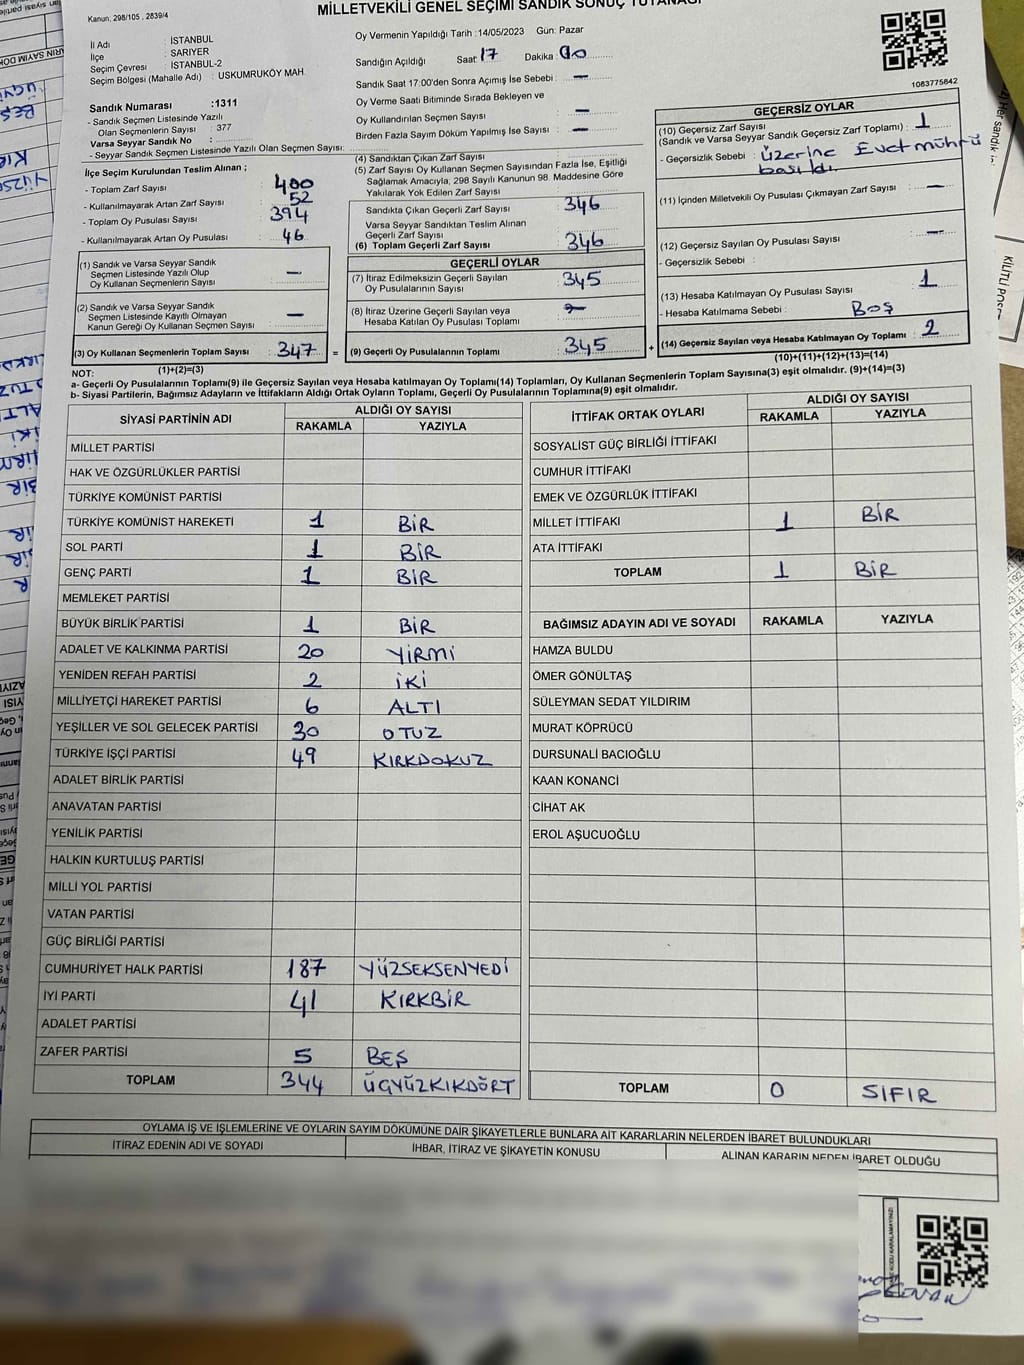 MİLLETVEKİLİ GENEL SEÇİMİ SANDIK SONUÇ TUTANAĞI
Kanun, 298/105 , 2839/4
İl Adı : İSTANBUL
İlçe : SARIYER
Seçim Çevresi : İSTANBUL-2
Seçim Bölgesi (Mahalle Adı) : USKUMRUKÖY MAH.
Sandık Numarası :1311
- Sandık Seçmen Listesinde Yazılı
Olan Seçmenlerin Sayısı : 377
Varsa Seyyar Sandık No :
- Seyyar Sandık Seçmen Listesinde Yazılı Olan Seçmen Sayısı:
Oy Vermenin Yapıldığı Tarih :14/05/2023 Gün: Pazar
Sandığın Açıldığı Saat: 17 Dakika: 00
Sandık Saat 17:00'den Sonra Açımış İse Sebebi : —
Oy Verme Saati Bitiminde Sırada Bekleyen ve
Oy Kullandırılan Seçmen Sayısı : —
Birden Fazla Sayım Döküm Yapılmış İse Sayısı : —
1083775842
İlçe Seçim Kurulundan Teslim Alınan ;
- Toplam Zarf Sayısı : 400
- Kullanılmayarak Artan Zarf Sayısı : 52
- Toplam Oy Pusulası Sayısı : 394
- Kullanılmayarak Artan Oy Pusulası : 46
(1) Sandık ve Varsa Seyyar Sandık
Seçmen Listesinde Yazılı Olup
Oy Kullanan Seçmenlerin Sayısı : —
(2) Sandık ve Varsa Seyyar Sandık
Seçmen Listesinde Kayıtlı Olmayan
Kanun Gereği Oy Kullanan Seçmen Sayısı : —
(3) Oy Kullanan Seçmenlerin Toplam Sayısı : 347
(1)+(2)=(3)
(4) Sandıktan Çıkan Zarf Sayısı :
(5) Zarf Sayısı Oy Kullanan Seçmen Sayısından Fazla İse, Eşitliği
Sağlamak Amacıyla, 298 Sayılı Kanunun 98. Maddesine Göre
Yakılarak Yok Edilen Zarf Sayısı :
Sandıkta Çıkan Geçerli Zarf Sayısı : 346
Varsa Seyyar Sandıktan Teslim Alınan
Geçerli Zarf Sayısı :
(6) Toplam Geçerli Zarf Sayısı : 346
GEÇERLİ OYLAR
(7) İtiraz Edilmeksizin Geçerli Sayılan
Oy Pusulalarının Sayısı : 345
(8) İtiraz Üzerine Geçerli Sayılan veya
Hesaba Katılan Oy Pusulası Toplamı :
= (9) Geçerli Oy Pusulalarının Toplamı : 345
GEÇERSİZ OYLAR
(10) Geçersiz Zarf Sayısı
(Sandık ve Varsa Seyyar Sandık Geçersiz Zarf Toplamı) : 1
- Geçersizlik Sebebi : üzerine Evet mührü
basıldı.
(11) İçinden Milletvekili Oy Pusulası Çıkmayan Zarf Sayısı : —
(12) Geçersiz Sayılan Oy Pusulası Sayısı : —
- Geçersizlik Sebebi :
(13) Hesaba Katılmayan Oy Pusulası Sayısı : 1
- Hesaba Katılmama Sebebi : BOŞ
+ (14) Geçersiz Sayılan veya Hesaba Katılmayan Oy Toplamı : 2
(10)+(11)+(12)+(13)=(14)
NOT:
a- Geçerli Oy Pusulalarının Toplamı(9) ile Geçersiz Sayılan veya Hesaba katılmayan Oy Toplamı(14) Toplamları, Oy Kullanan Seçmenlerin Toplam Sayısına(3) eşit olmalıdır. (9)+(14)=(3)
b- Siyasi Partilerin, Bağımsız Adayların ve İttifakların Aldığı Ortak Oyların Toplamı, Geçerli Oy Pusulalarının Toplamına(9) eşit olmalıdır.
SİYASİ PARTİNİN ADI ALDIĞI OY SAYISI
RAKAMLA YAZIYLA
MİLLET PARTİSİ
HAK VE ÖZGÜRLÜKLER PARTİSİ
TÜRKİYE KOMÜNİST PARTİSİ
TÜRKİYE KOMÜNİST HAREKETİ 1 BİR
SOL PARTİ 1 BİR
GENÇ PARTİ 1 BİR
MEMLEKET PARTİSİ
BÜYÜK BİRLİK PARTİSİ 1 BİR
ADALET VE KALKINMA PARTİSİ 20 YİRMİ
YENİDEN REFAH PARTİSİ 2 İKİ
MİLLİYETÇİ HAREKET PARTİSİ 6 ALTI
YEŞİLLER VE SOL GELECEK PARTİSİ 30 OTUZ
TÜRKİYE İŞÇİ PARTİSİ 49 KIRKDOKUZ
ADALET BİRLİK PARTİSİ
ANAVATAN PARTİSİ
YENİLİK PARTİSİ
HALKIN KURTULUŞ PARTİSİ
MİLLİ YOL PARTİSİ
VATAN PARTİSİ
GÜÇ BİRLİĞİ PARTİSİ
CUMHURİYET HALK PARTİSİ 187 YÜZSEKSENYEDİ
İYİ PARTİ 41 KIRKBİR
ADALET PARTİSİ
ZAFER PARTİSİ 5 BEŞ
TOPLAM 344 ÜÇYÜZKIKDÖRT
İTTİFAK ORTAK OYLARI ALDIĞI OY SAYISI
RAKAMLA YAZIYLA
SOSYALİST GÜÇ BİRLİĞİ İTTİFAKI
CUMHUR İTTİFAKI
EMEK VE ÖZGÜRLÜK İTTİFAKI
MİLLET İTTİFAKI 1 BİR
ATA İTTİFAKI
TOPLAM 1 BİR
BAĞIMSIZ ADAYIN ADI VE SOYADI RAKAMLA YAZIYLA
HAMZA BULDU
ÖMER GÖNÜLTAŞ
SÜLEYMAN SEDAT YILDIRIM
MURAT KÖPRÜCÜ
DURSUNALİ BACIOĞLU
KAAN KONANCİ
CİHAT AK
EROL AŞUCUOĞLU
TOPLAM 0 SIFIR
OYLAMA İŞ VE İŞLEMLERİNE VE OYLARIN SAYIM DÖKÜMÜNE DAİR ŞİKAYETLERLE BUNLARA AİT KARARLARIN NELERDEN İBARET BULUNDUKLARI
İTİRAZ EDENİN ADI VE SOYADI İHBAR, İTİRAZ VE ŞİKAYETİN KONUSU ALINAN KARARIN NEDEN İBARET OLDUĞU